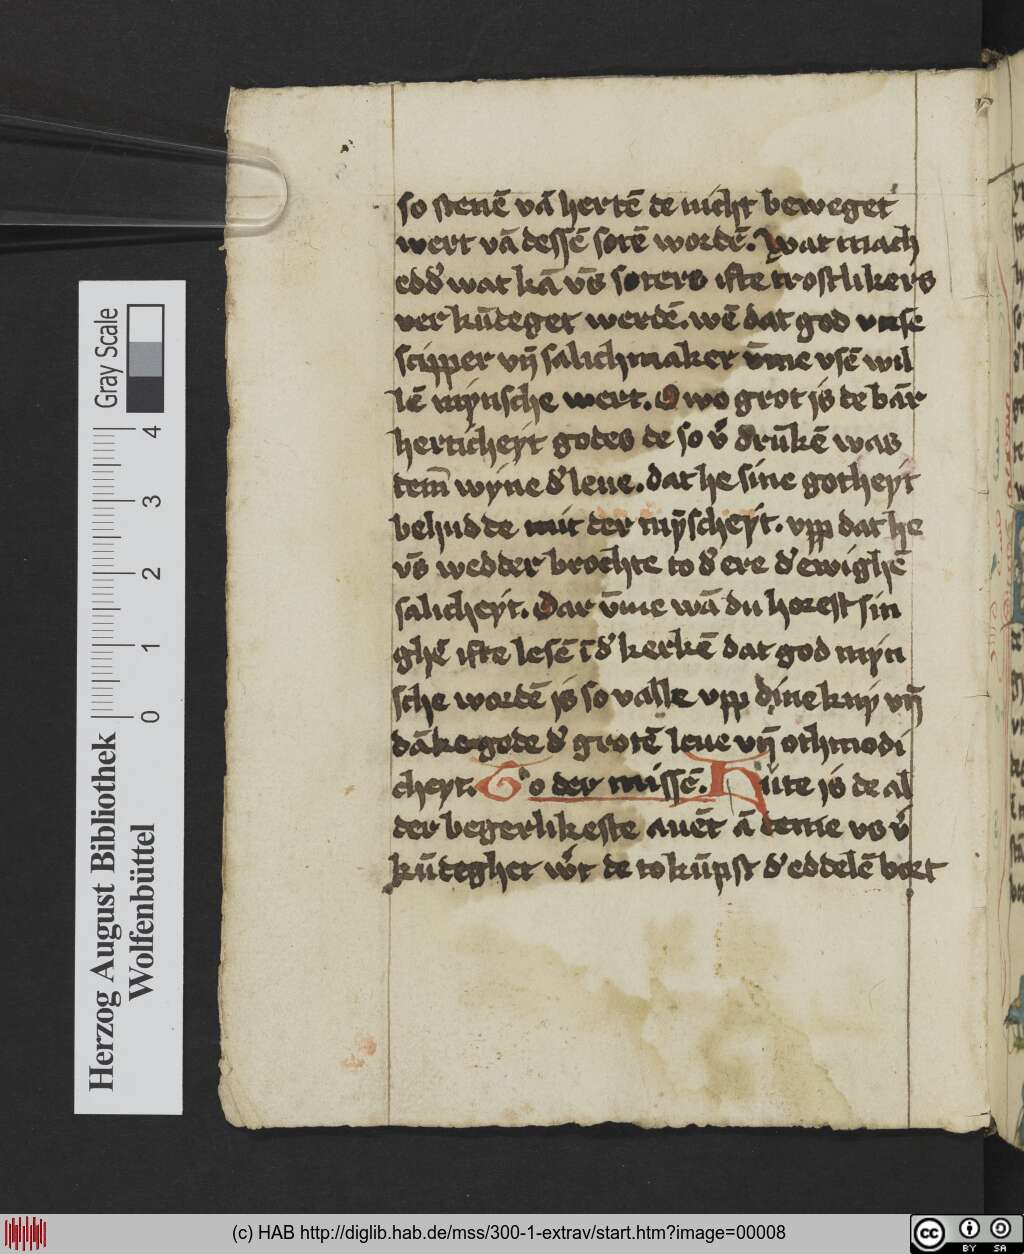 so stenē vā hertē de nicht beweget
wert vā dessē sotē wordē. Wat mach
edd' wat kā vn̄s soters ifte trostlikers
ver kūdeget werdē. wē dat god vnse
scipper vn̄ salichmaker vm̄e vsē wil
lē mynsche wert. O wo grot js de bār
herticheyt godes de so v' drūkē was
tem̄ wyne d' leue. dat he sine gotheyt
behudde mit der mȳscheyt. vpp dat he
vn̄s wedder brochte to d' ere d' ewighē
salicheyt. Dar vm̄e wā du horest sin
ghē ifte lesē ī d' kerkē dat god myn
sche wordē js so valle vpp dine knij vn̄
dāke gode d' grotē leue vn̄ othmodi
cheyt. To der missē. Hūte is de al
der begerlikeste auēt ā deme vs v'
kūdeghet w't de tokūpst d' eddelē bort
Herzog August Bibliothek
Wolfenbüttel
Gray Scale
0 1 2 3 4
(c) HAB http://diglib.hab.de/mss/300-1-extrav/start.htm?image=00008
cc BY SA